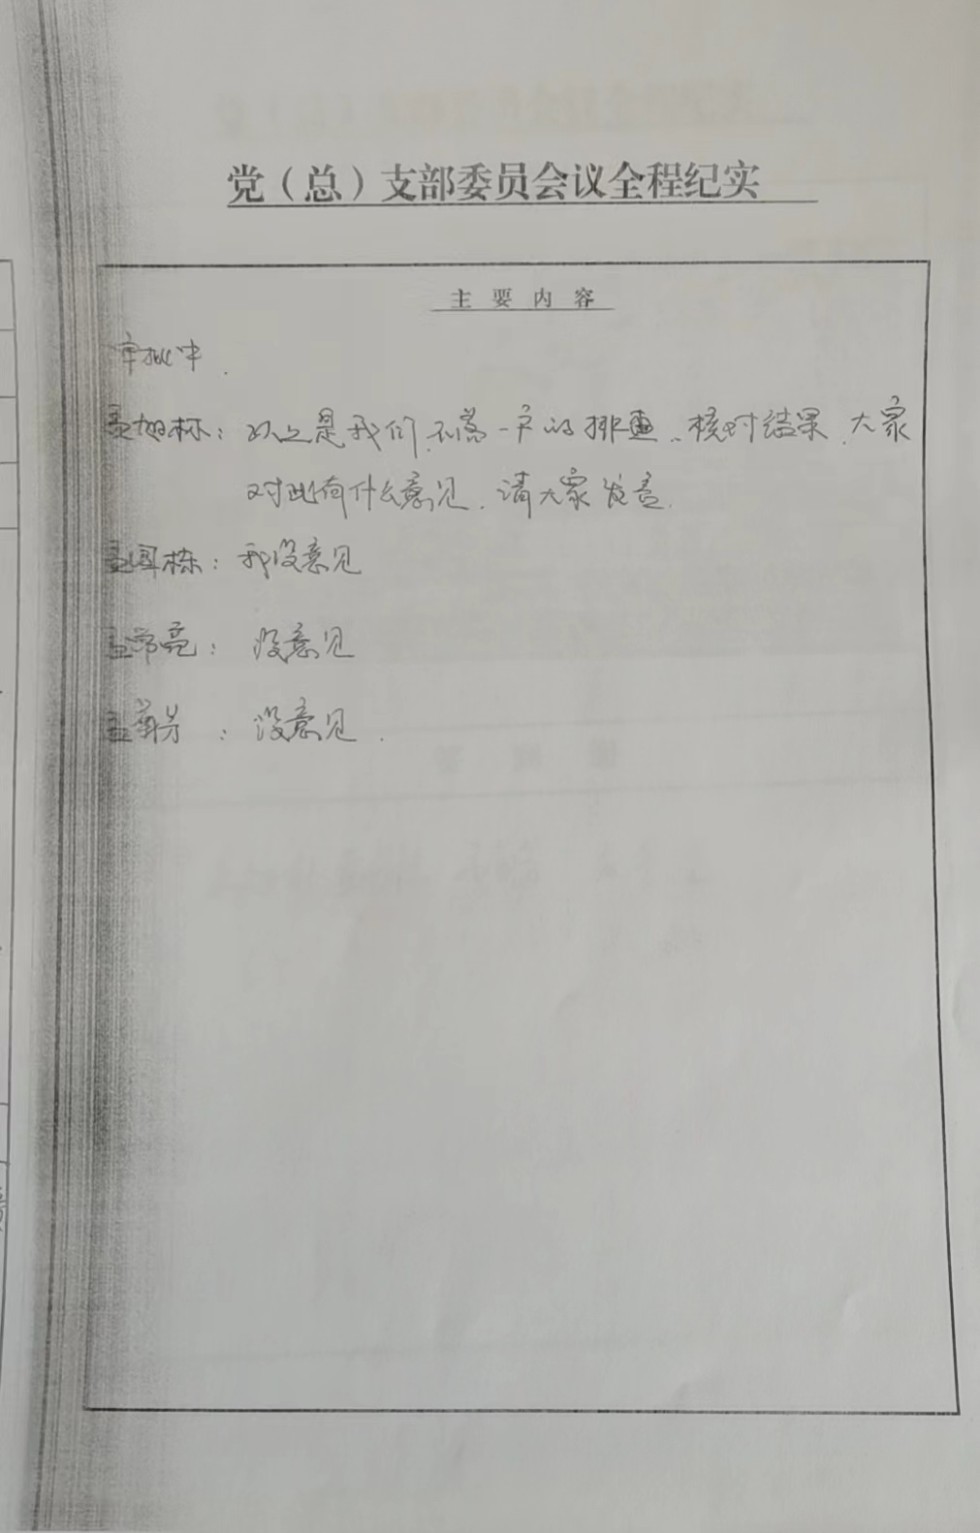 党（总）支部委员会议全程纪实
主要内容
审批中.
孟旭栋：以上是我们不漏一户的排查、核对结果，大家
对此有什么意见，请大家发言.
孟国栋：我没意见
孟常亮：没意见
孟菊芳：没意见.